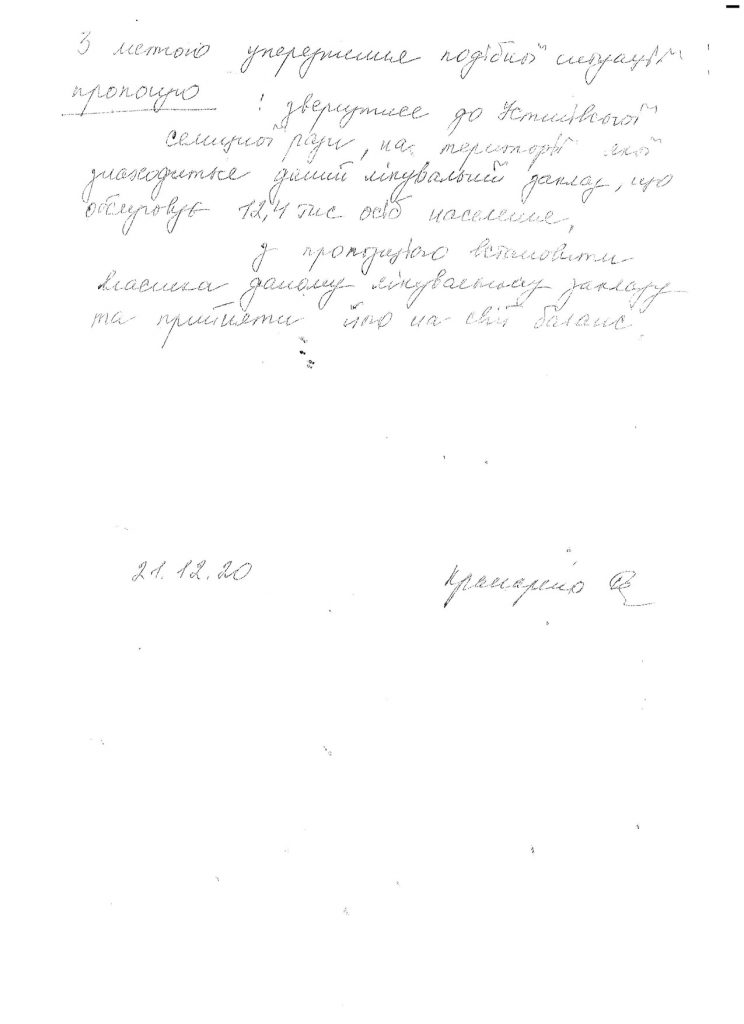 З метою упередження подібної ситуації
пропоную : звернутися до Устинівської
селищної ради, на території якої
знаходиться даний лікувальний заклад, що
обслуговує 12,4 тис осіб населення,
з пропозицією встановити
власника даному лікувальному закладу
та прийняти його на свій баланс.
21.12.20 Крамаренко